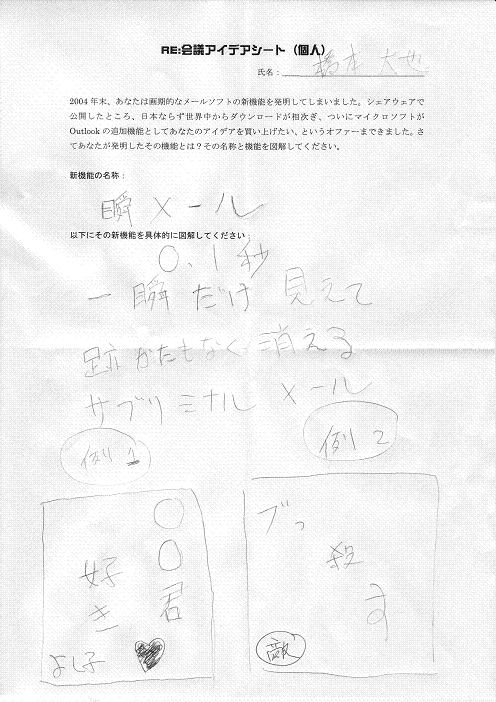 RE:会議アイデアシート（個人）
氏名：橋本 大也
2004 年末、あなたは画期的なメールソフトの新機能を発明してしまいました。シェアウェアで
公開したところ、日本ならず世界中からダウンロードが相次ぎ、ついにマイクロソフトが
Outlook の追加機能としてあなたのアイデアを買い上げたい、というオファーまできました。さ
てあなたが発明したその機能とは？その名称と機能を図解してください。
新機能の名称：
瞬メール
以下にその新機能を具体的に図解してください：
0.1秒
一瞬だけ見えて
跡かたもなく消える
サブリミナルメール
例1
○○君
好き
よし子
例2
ブっ
殺
す
敵